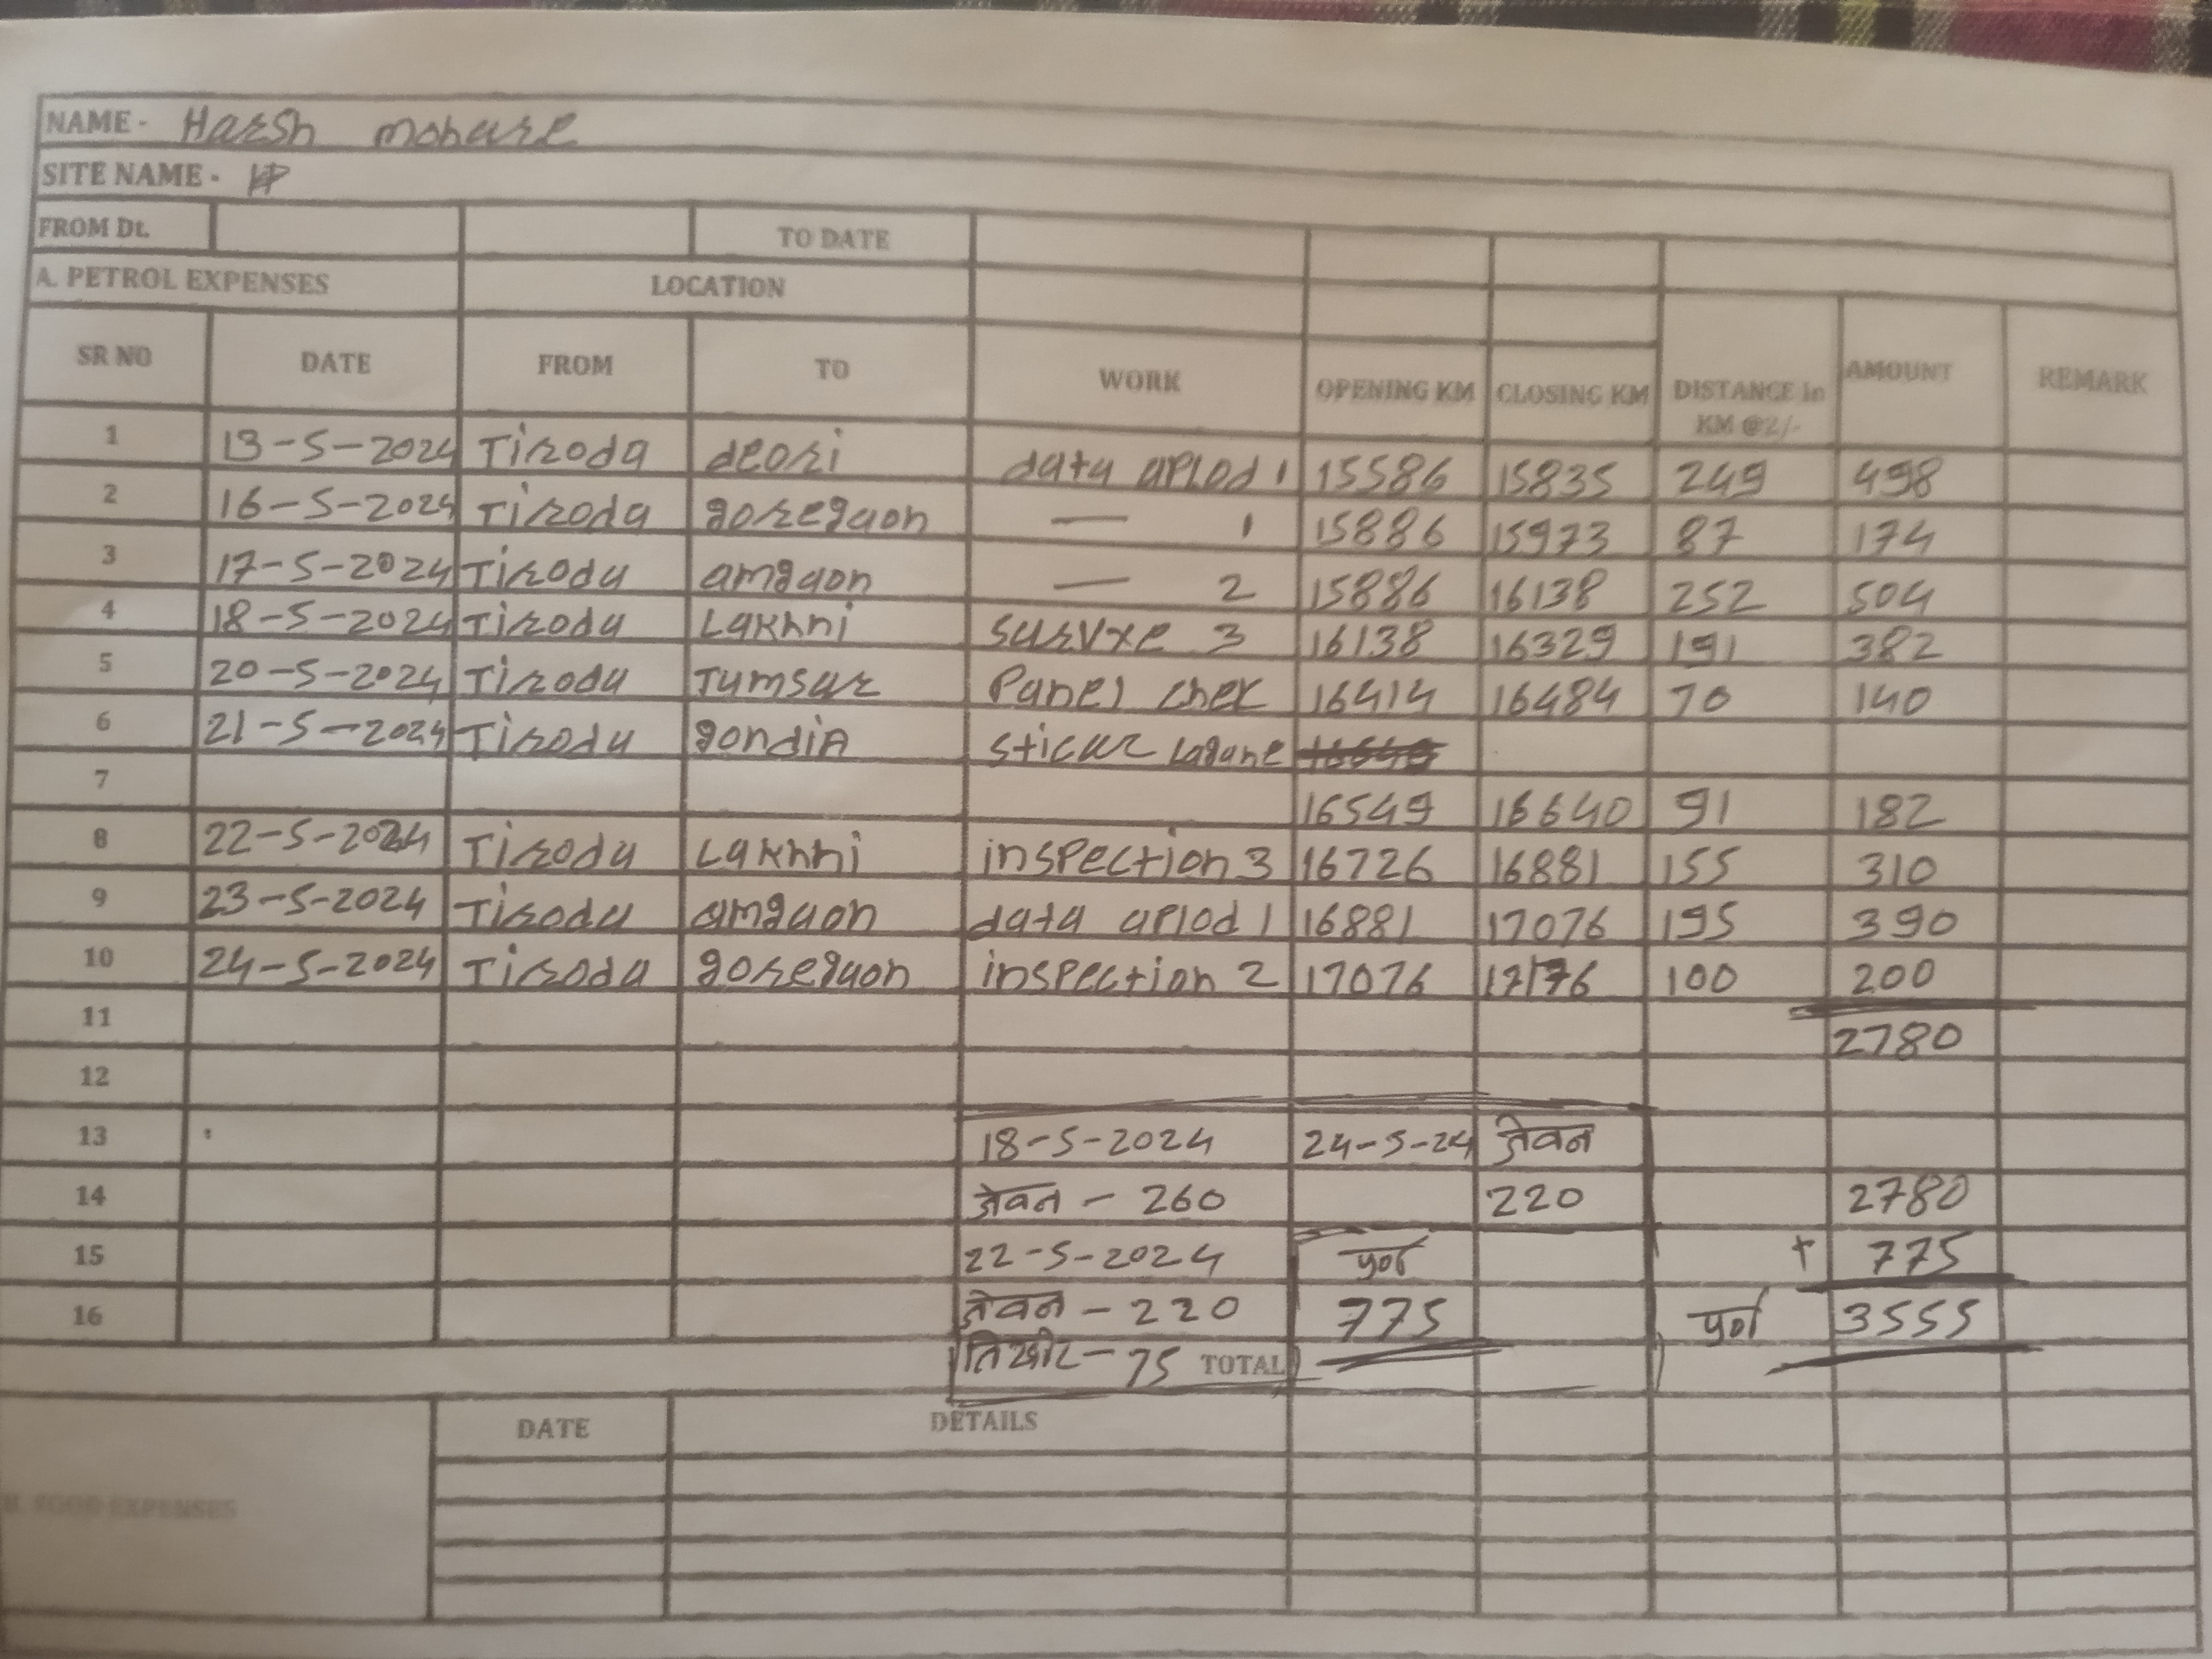 NAME - Harsh mohare
SITE NAME -
FROM Dt. TO DATE
A. PETROL EXPENSES LOCATION
SR NO DATE FROM TO WORK OPENING KM CLOSING KM DISTANCE In KM @2/- AMOUNT REMARK
1 13-5-2024 Tiroda deori data aplod 1 15586 15835 249 498
2 16-5-2024 Tiroda goregaon — 1 15886 15973 87 174
3 17-5-2024 Tiroda amgaon — 2 15886 16138 252 504
4 18-5-2024 Tiroda Lakhni survye 3 16138 16329 191 382
5 20-5-2024 Tiroda Tumsar Panel chek 16414 16484 70 140
6 21-5-2024 Tiroda gondia sticar lagane
7 16549 16640 91 182
8 22-5-2024 Tiroda Lakhni inspection 3 16726 16881 155 310
9 23-5-2024 Tiroda amgaon data aplod 1 16881 17076 195 390
10 24-5-2024 Tiroda goregaon inspection 2 17076 17176 100 200
11 2780
12
13 18-5-2024 24-5-24 जेवन
14 जेवन - 260 220 2780
15 22-5-2024 पूर्ण + 775
16 जेवन - 220 775 पूर्ण 3555
- 75 TOTAL
DATE DETAILS
B. FOOD EXPENSES